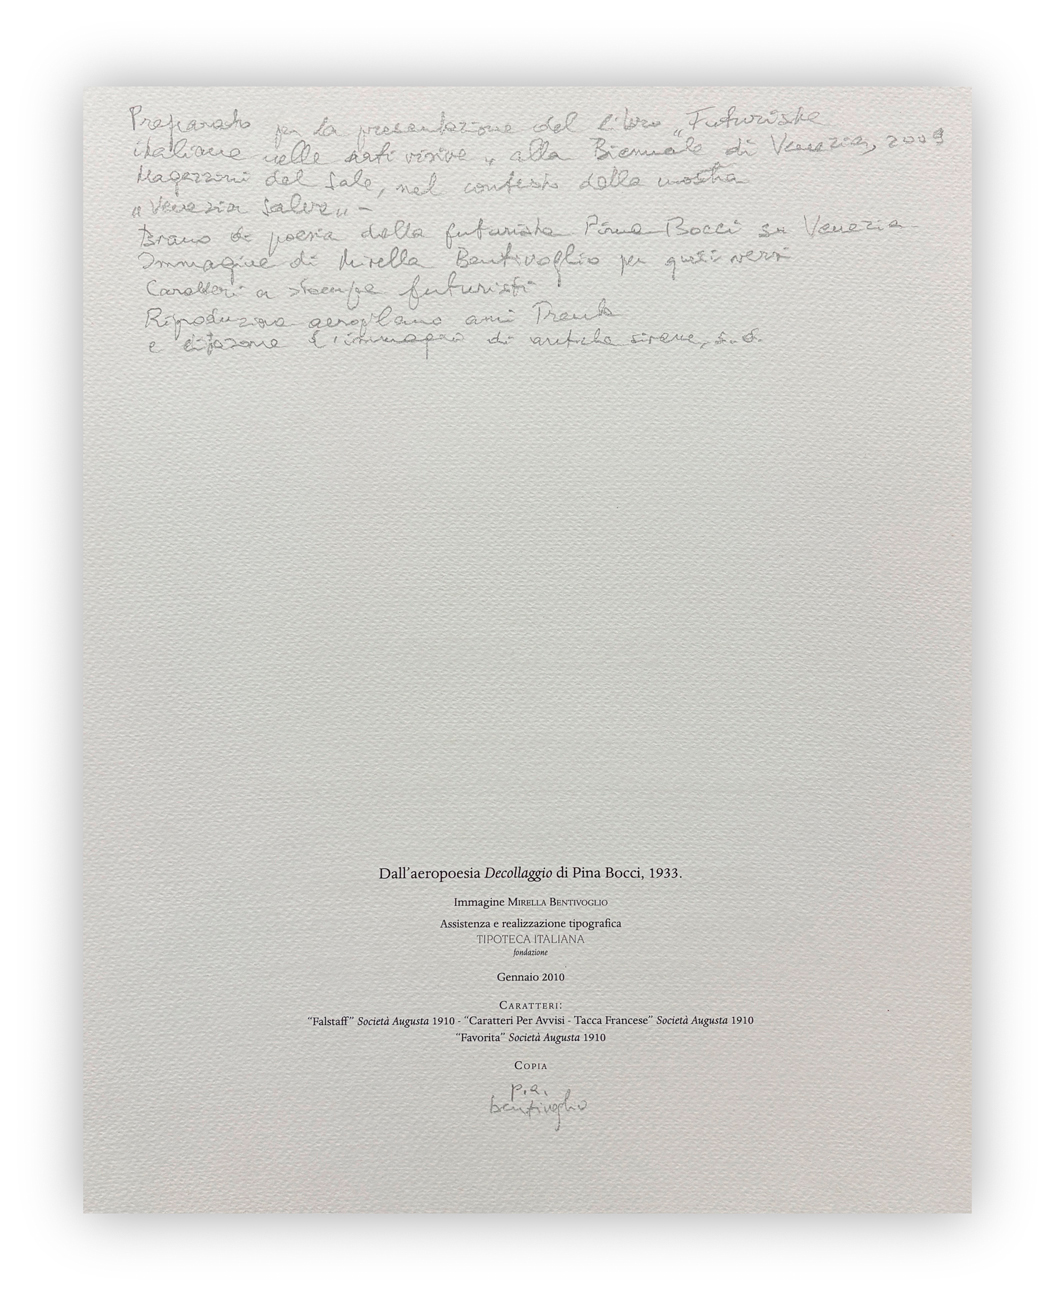 Preparato per la presentazione del libro „Futuriste
italiane nelle arti visive„ alla Biennale di Venezia, 2009
Magazzini del Sale, nel contesto della mostra
„Venezia Salva„ -
Brano di poesia della futurista Pina Bocci su Venezia.
Immagine di Mirella Bentivoglio per questi versi
Caratteri a stampa futuristi
Riproduzione aeroplano anni Trenta
e l'immagine di antiche sirene, s.d.
Dall'aeropoesia Decollaggio di Pina Bocci, 1933.
Immagine Mirella Bentivoglio
Assistenza e realizzazione tipografica
TIPOTECA ITALIANA
fondazione
Gennaio 2010
Caratteri:
"Falstaff" Società Augusta 1910 - "Caratteri Per Avvisi - Tacca Francese" Società Augusta 1910
"Favorita" Società Augusta 1910
Copia
p.a.
bentivoglio